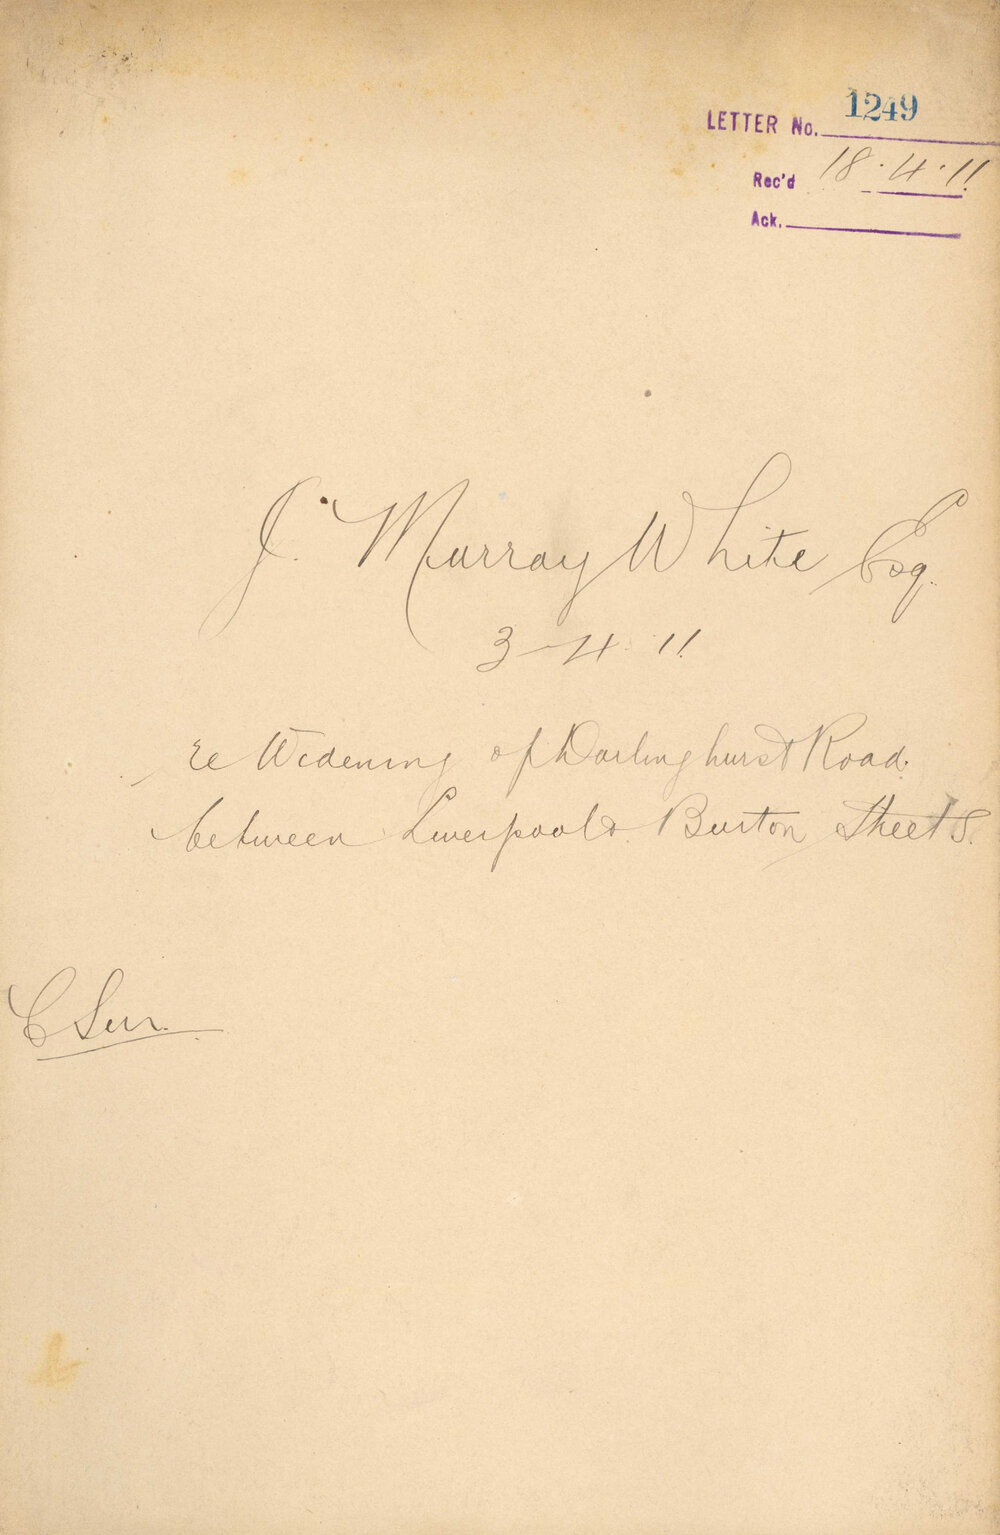 LETTER No. 1249
Rec'd 18.4.11.
Ack.
J. Murray White Esq.
3-4 11.
re Widening of Darlinghurst Road.
between Liverpool & Burton Streets.
C Sur.